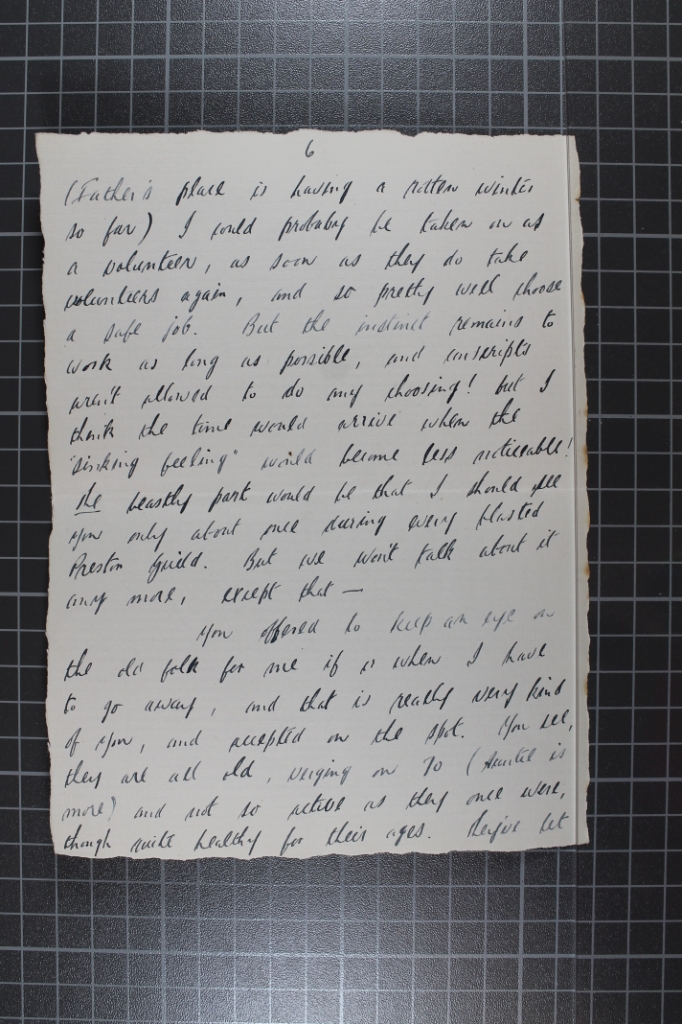 6
(Father's place is having a rotten winter
so far) I could probably be taken on as
a volunteer, as soon as they do take
volunteers again, and so pretty well choose
a safe job. But the instinct remains to
work as long as possible, and conscripts
aren't allowed to do any choosing! but I
think the time would arrive when the
"sinking feeling" would become less noticeable!
The beastly part would be that I should see
you only about once during every blasted
Preston Guild. But we won't talk about it
any more, except that —
You offered to keep an eye on
the old folk for me if or when I have
to go away, and that is really very kind
of you, and accepted on the spot. You see,
they are all old, verging on 70 (Auntie is
more) and not so active as they once were,
though quite healthy for their ages. They've let